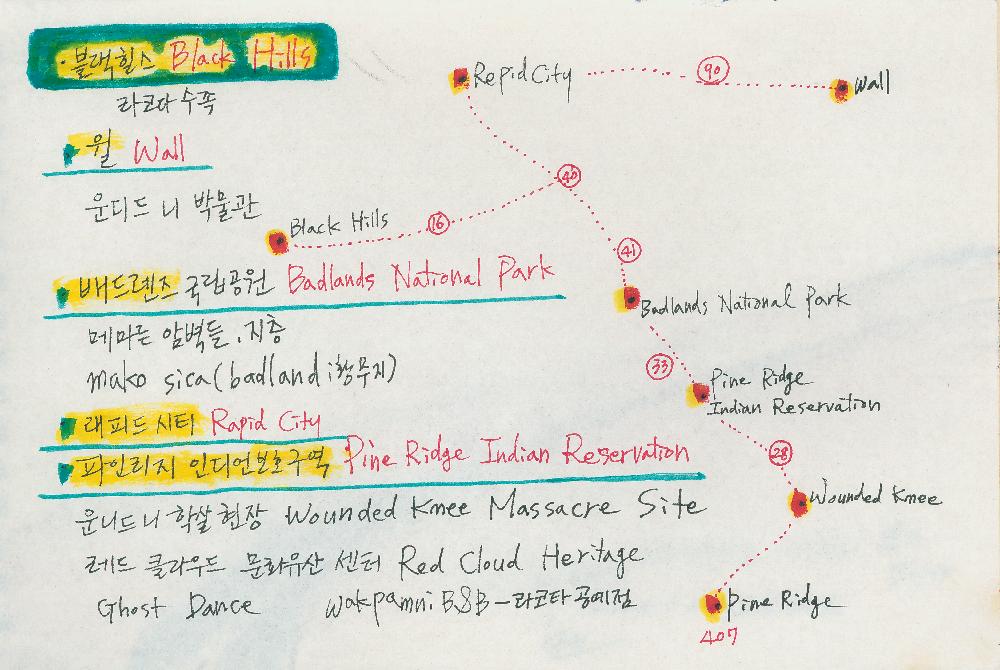 · 블랙힐스 Black Hills
라코타 수족
월 Wall
운디드 니 박물관
배드랜즈 국립공원 Badlands National Park
메마른 암벽들, 지층
mako sica (badland; 황무지)
래피드 시티 Rapid City
파인리지 인디언보호구역 Pine Ridge Indian Reservation
운디드 니 학살 현장 Wounded Knee Massacre Site
레드 클라우드 문화유산 센터 Red Cloud Heritage
Ghost Dance
Wakpamni B&B - 라코타 공예점
Repid City
90
Wall
40
16
Black Hills
41
Badlands National Park
33
Pine Ridge
Indian Reservation
28
Wounded Knee
Pine Ridge
407